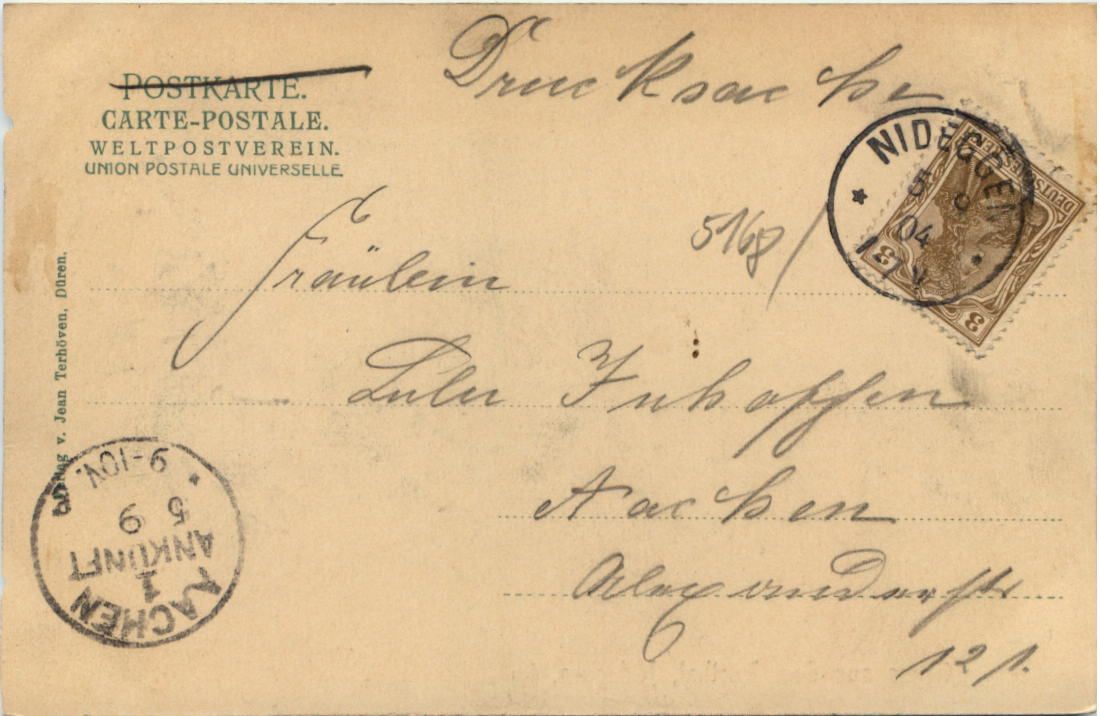 Drucksache
POSTKARTE.
CARTE-POSTALE.
WELTPOSTVEREIN.
UNION POSTALE UNIVERSELLE.
NIDEGGEN
5 9 04
DEUTSCHES REICH
3 3
5168
Fräulein
Lulu Inhoffen
Aachen
Alexanderstr
121.
Verlag v. Jean Terhöven, Düren.
AACHEN
1
ANKUNFT
5 9
9-10V.